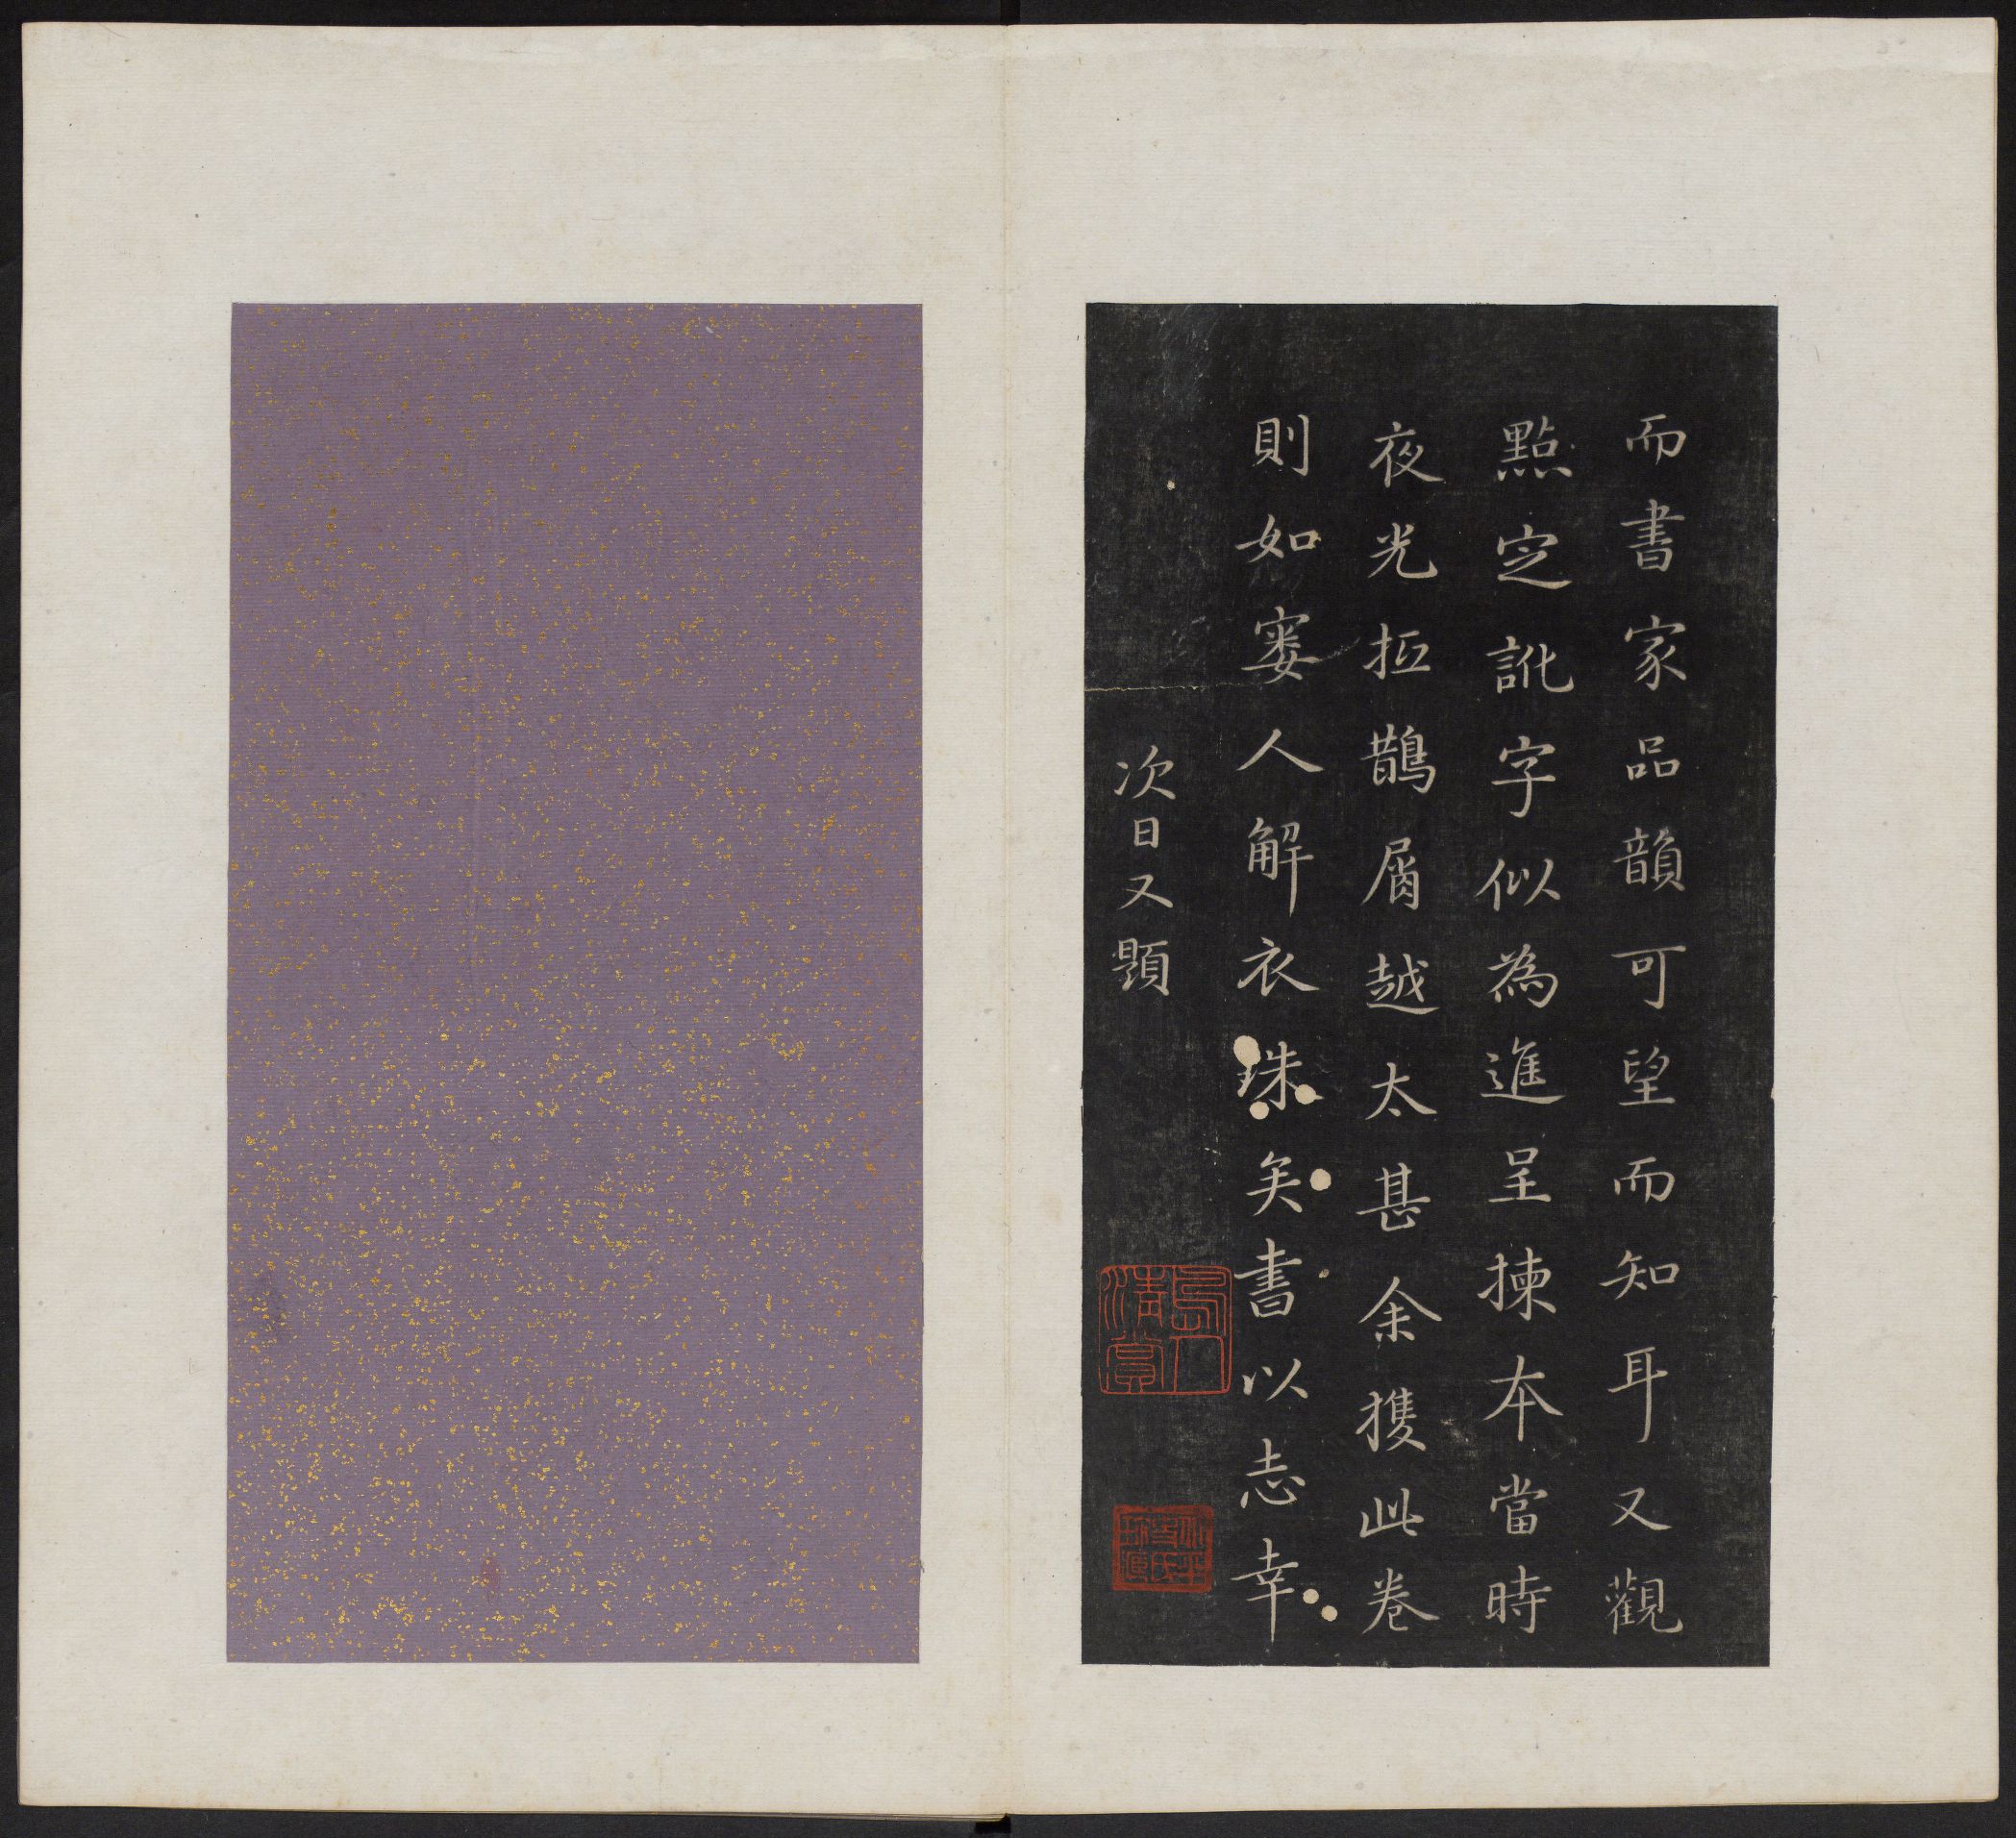 而書家品韻可望而知耳又觀
點定訛字似為進呈揀本當時
夜光抵鵲屑越太甚余獲此卷
則如寠人解衣珠矣書以志幸
次日又題